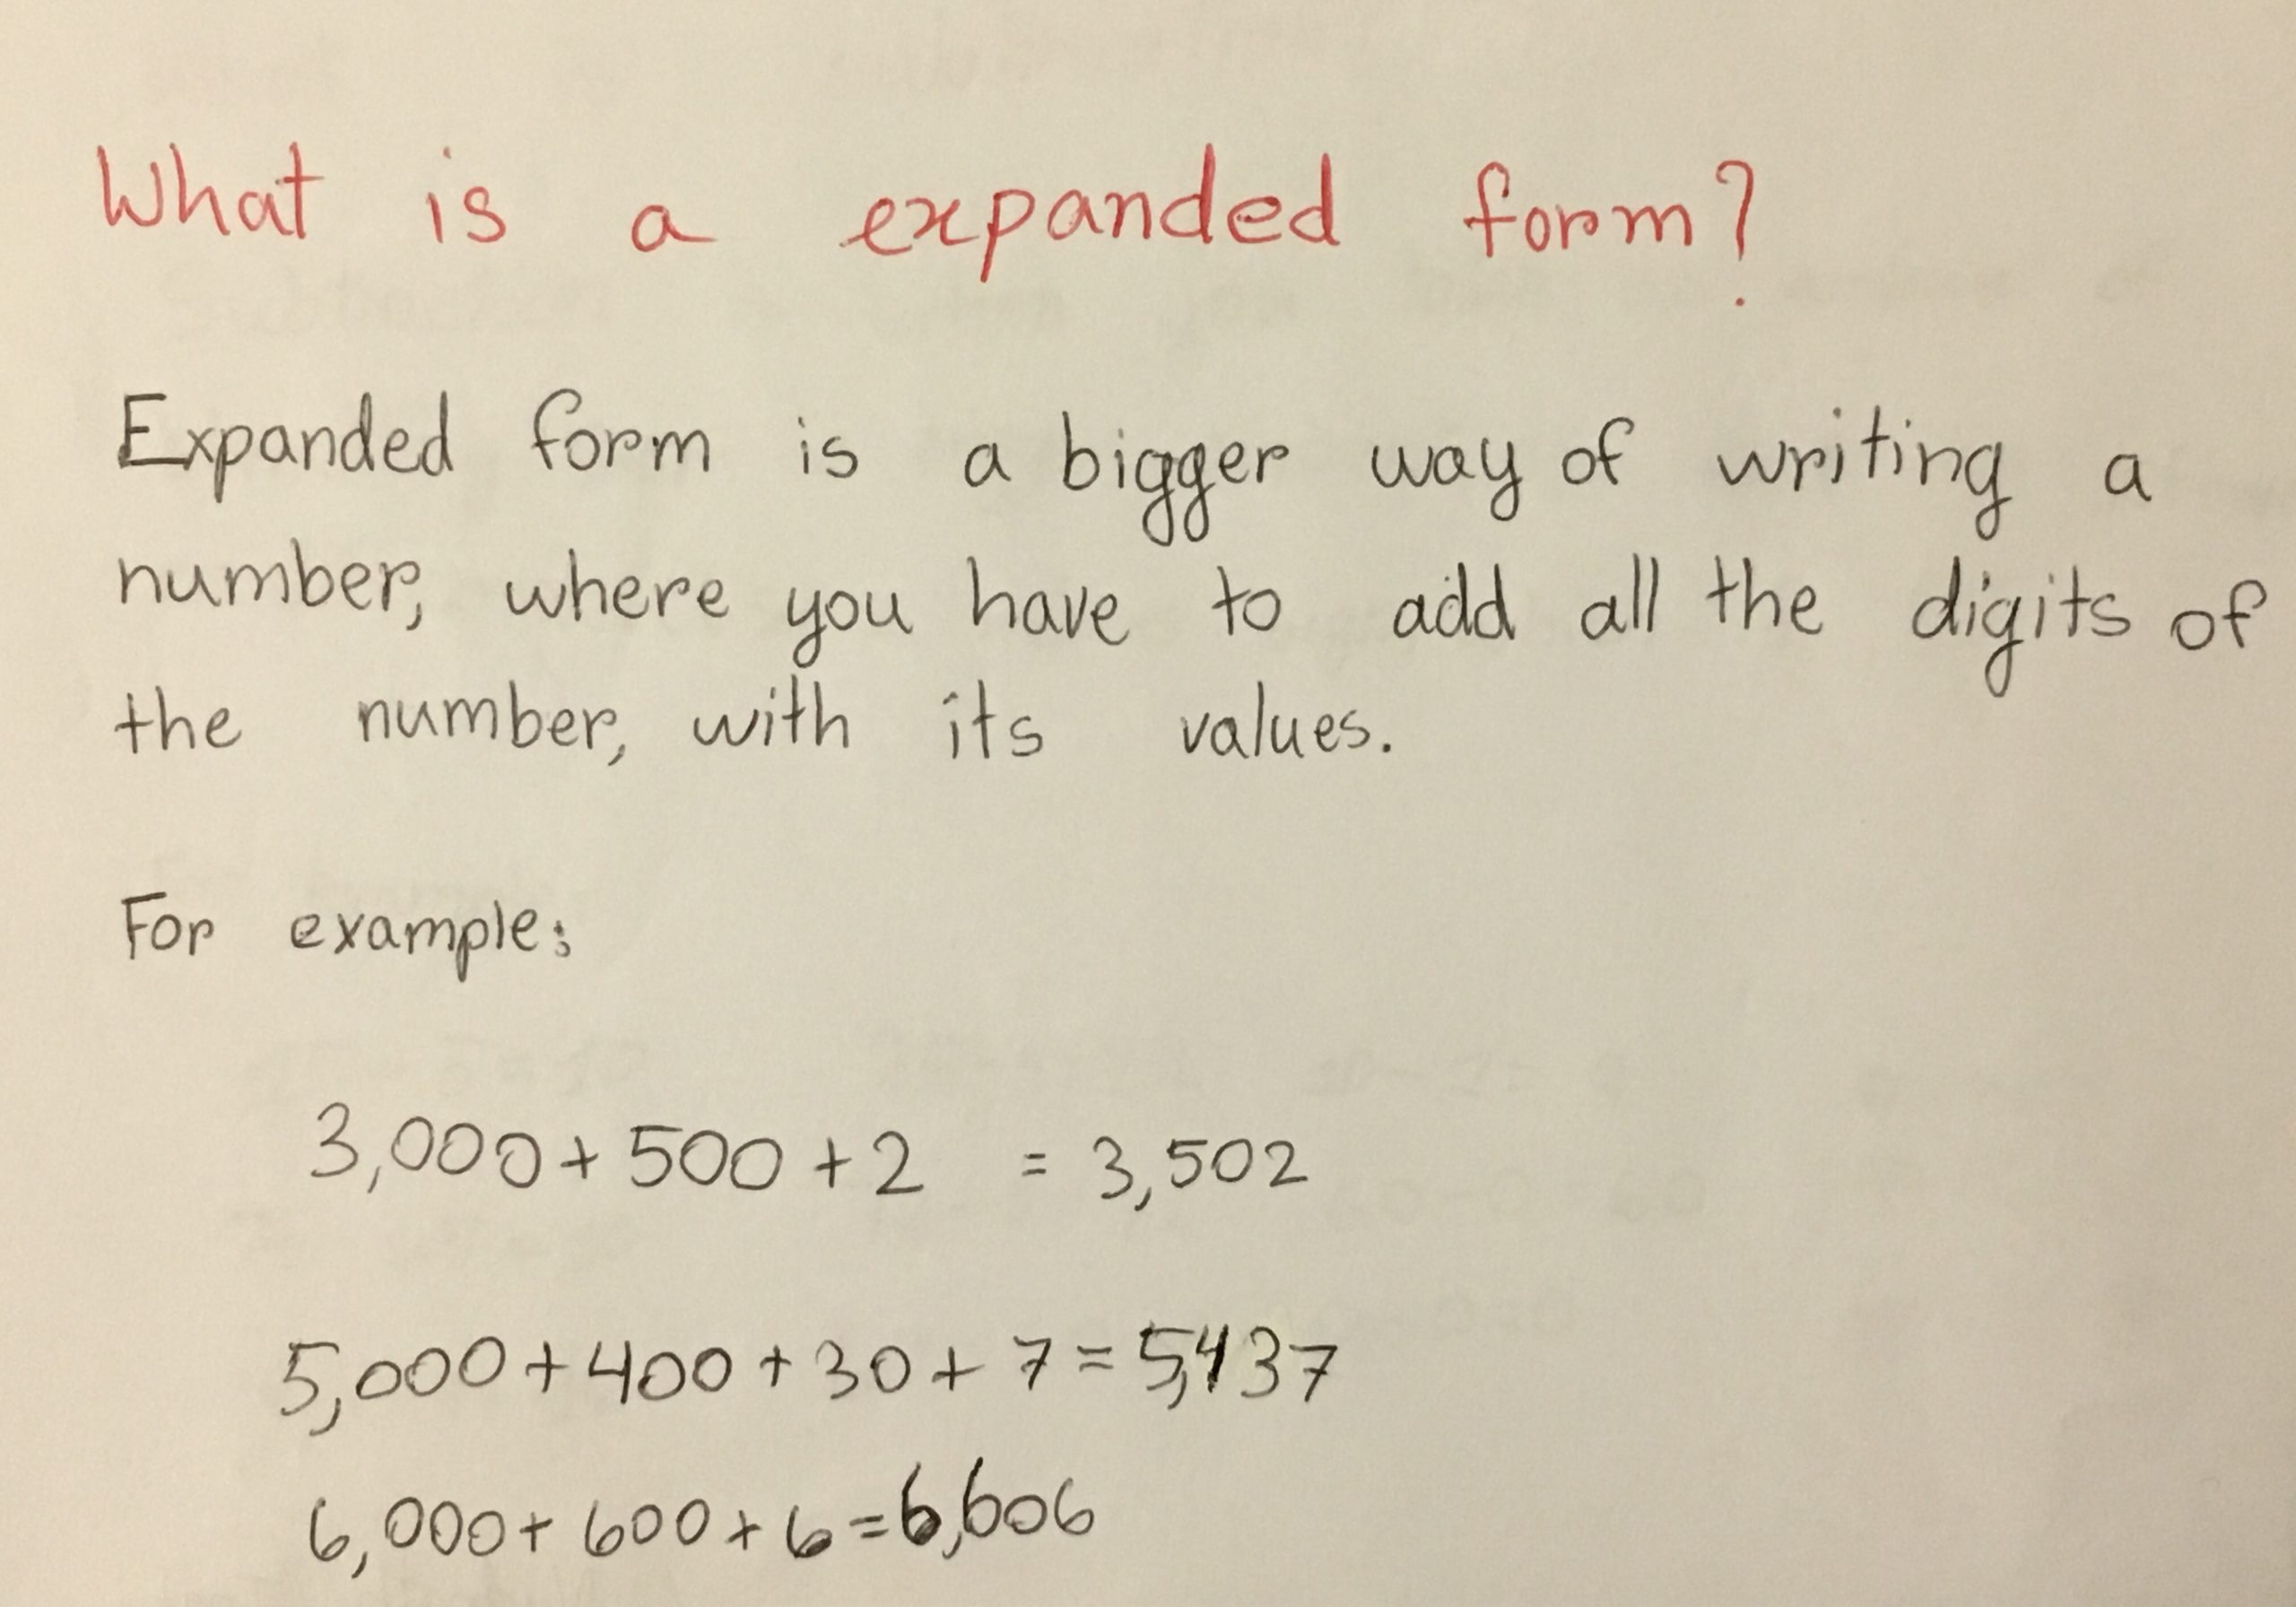 What is a expanded form?
Expanded form is a bigger way of writing a
number, where you have to add all the digits of
the number, with its values.
For example:
3,000 + 500 + 2 = 3,502
5,000 + 400 + 30 + 7 = 5,437
6,000 + 600 + 6 = 6,606